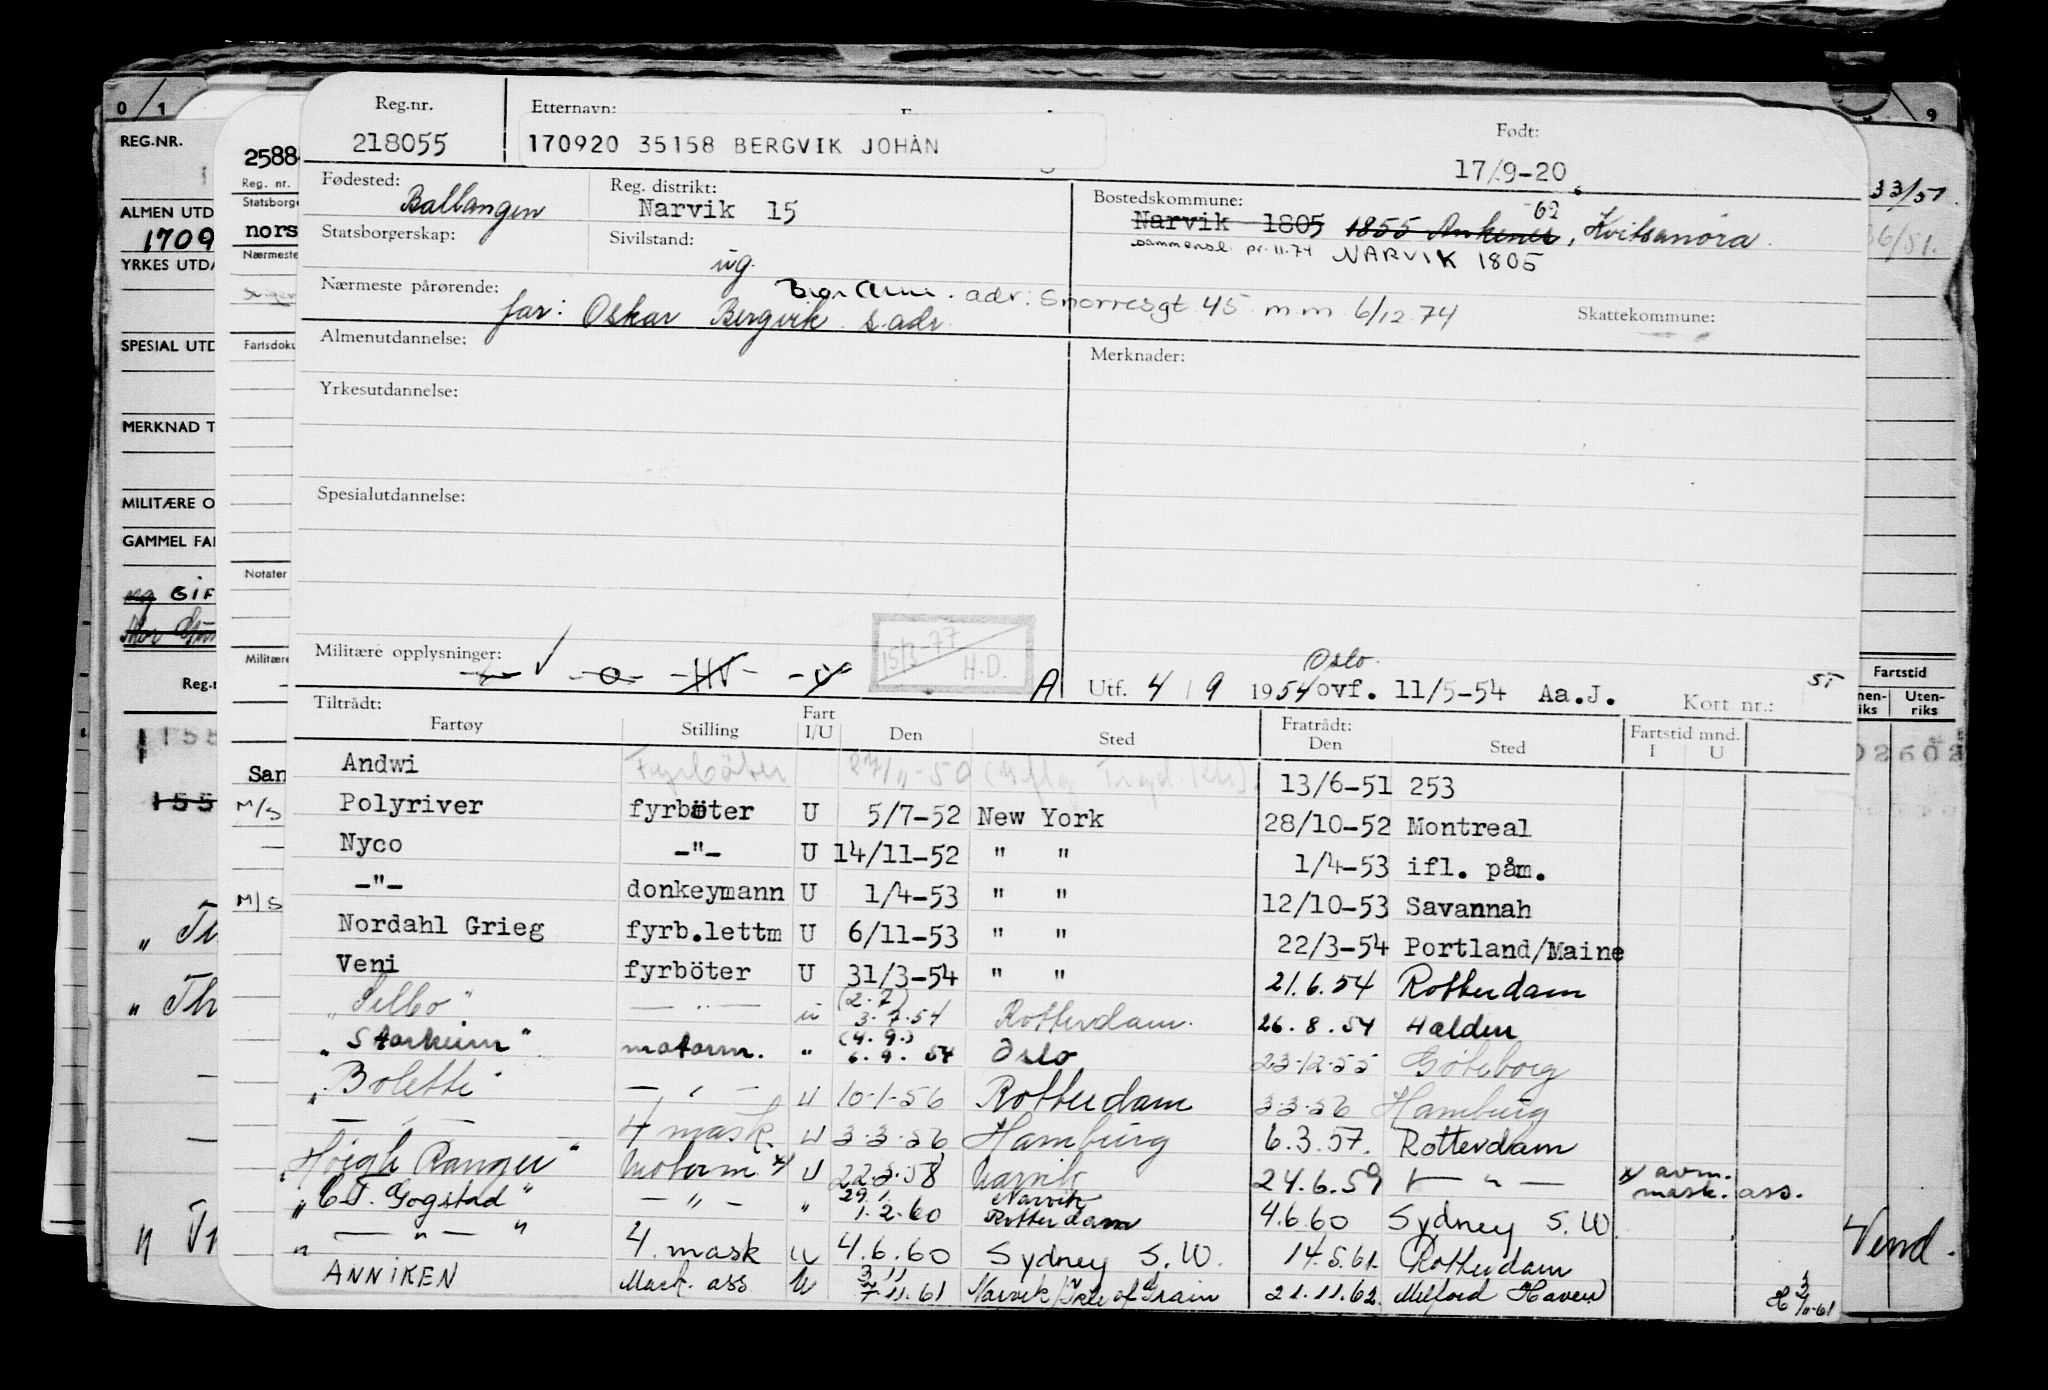 0/1
9
REG.NR.
ALMEN UTD
1709
YRKES UTDA
SPESIAL UTD
MERKNAD T
MILITÆRE O
GAMMEL FA
ug GIF
Reg.n
155
" Th
" Th
2588
Reg. nr.
Statsborge
nors
Nærmeste
Fartsdoku
Notater
Militære
San
M/S
M/S
33/51.
36/51.
Fartstid
Uten-
riks
Vend.
Reg.nr. Etternavn: Født:
218055 170920 35158 BERGVIK JOHAN 17/9-20
Fødested: Ballangen Reg. distrikt: Narvik 15 Bostedskommune: Narvik 1805 1855 Ankenes, -62 Kvitsandra.
Statsborgerskap: Sivilstand: ug. sammensl. pr. 11.74 NARVIK 1805
Nærmeste pårørende: far: Oskar Bergvik s.adr. adr: Snorresgt 45 m.m 6/12 74 Skattekommune:
Almenutdannelse: Merknader:
Yrkesutdannelse:
Spesialutdannelse:
15/3-77 H.D.
Militære opplysninger: A Utf. 4/9 1954 Oslo ovf. 11/5-54 Aa.J. Kort nr.: ST
Tiltrådt: Fratrådt: Fartstid mnd.
Fartøy Stilling Fart I/U Den Sted Den Sted I U
Andwi Fyrböter 27/11-50 13/6-51 253
Polyriver fyrböter U 5/7-52 New York 28/10-52 Montreal
Nyco -"- U 14/11-52 " " 1/4-53 ifl. påm.
-"- donkeymann U 1/4-53 " " 12/10-53 Savannah
Nordahl Grieg fyrb.lettm U 6/11-53 " " 22/3-54 Portland/Maine
Veni fyrböter U 31/3-54 " " 21.6.54 Rotterdam
"Selbo" — " — u (2.7) 3.7.54 Rotterdam. 26.8.54 Halden
"Starheim" motorm. " (4.9.) 6.9.54 Oslo 23.12.55 Göteborg
"Bolette" — " — U 10.1.56 Rotterdam 3.3.56 Hamburg
— " — 4 mask. U 3.3.56 Hamburg 6.3.57. Rotterdam
"Höegh Ranger" Motorm x) U 22.3.58 Narvik 24.6.59 — " — x) avm. mask. ass.
"C.T. Gogstad" — " — " 29.1. 1.2.60 Narvik Rotterdam 4.6.60 Sydney S.W.
" — " — " 4. mask U 4.6.60 Sydney S.W. 14.5.61 Rotterdam
ANNIKEN Mask. ass U 3/11 7.11.61 Narvik/Isle of Grain 21.11.62. Milford Haven